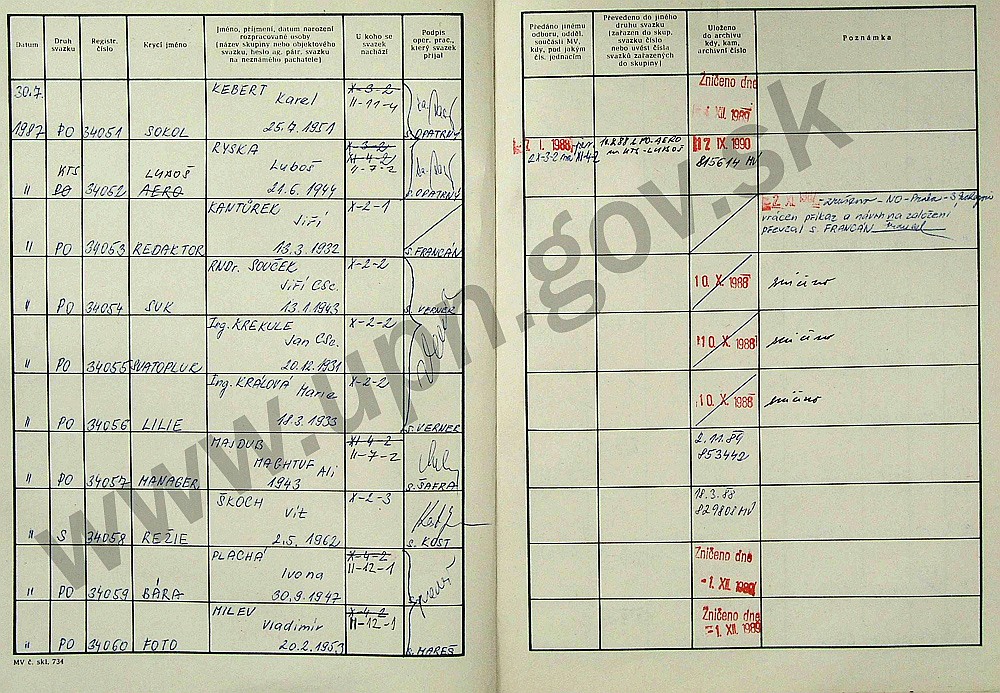 Datum
Druh svazku
Registr. číslo
Krycí jméno
Jméno, příjmení, datum narození
rozpracované osoby
(název skupiny nebo objektového
svazku, heslo ag. pátr. svazku
na neznámého pachatele)
U koho se
svazek
nachází
Podpis
oper. prac.,
který svazek
přijal
Předáno jinému
odboru, odděl.
součásti MV,
kdy, pod jakým
čís. jednacím
Převedeno do jiného
druhu svazku
(zařazen do skup.
svazku číslo
nebo uvést čísla
svazků zařazených
do skupiny)
Uloženo
do archivu
kdy, kam,
archivní číslo
Poznámka
30.7.
1987 PO 34051 SOKOL
KEBERT
Karel
25.7.1951
X-3-2
II-11-4
s. OPATRNÝ
Zničeno dne
XII. 1989
KTS
" PO 34052
LUBOŠ
AERO
RYSKA
Luboš
21.6.1944
X-3-2
XI-4-2
II-7-2
s. OPATRNÝ
I. 1988
PO-AERO
KTS-LUBOŠ
IX 1990
815614 MV
" PO 34053 REDAKTOR
KANTŮREK
Jiří
13.3.1932
X-2-1
s. FRANCÁN
zrušeno - NO-Praha
vrácen příkaz a návrh na založení
převzal s. FRANCÁN
" PO 34054 SUK
RNDr. SOUČEK
Jiří CSc.
13.1.1943
X-2-2
s. VERNER
10. X. 1988
zničeno
" PO 34055 SVATOPLUK
Ing. KREKULE
Jan CSc.
20.12.1931
X-2-2
10. X. 1988
zničeno
" PO 34056 LILIE
Ing. KRÁLOVÁ
Marie
18.3.1933
X-2-2
s. VERNER
10. X. 1988
zničeno
" PO 34057 MANAGER
MAJDUB
MACHTUF Ali
1943
XI-4-2
II-7-2
s. ŠAFRA
2.11.89
853442
" S 34058 REŽIE
ŠKOCH
Vít
2.5.1962
X-2-3
s. KOST
18.3.88
829808 MV
" PO 34059 BÁRA
PLACHÁ
Ivona
30.9.1947
X-4-2
II-12-1
Zničeno dne
-1. XII. 1989
" PO 34060 FOTO
MILEV
Vladimír
20.2.1953
X-4-2
II-12-1
s. MAREŠ
Zničeno dne
-1. XII. 1989
MV č. skl. 734
www.upn.gov.sk